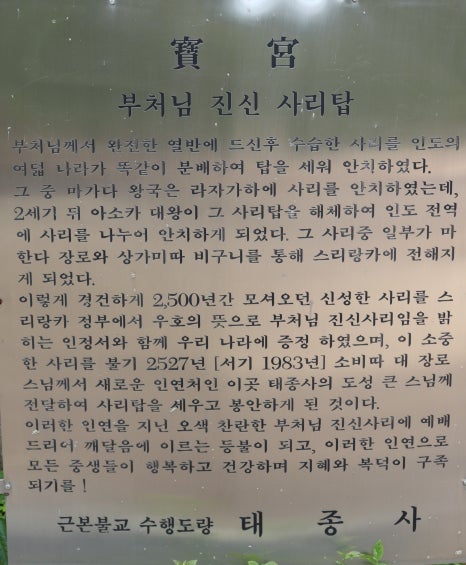 寶 宮
부처님 진신 사리탑
부처님께서 완전한 열반에 드신후 수습한 사리를 인도의
여덟 나라가 똑같이 분배하여 탑을 세워 안치하였다.
그 중 마가다 왕국은 라자가하에 사리를 안치하였는데,
2세기 뒤 아소카 대왕이 그 사리탑을 해체하여 인도 전역
에 사리를 나누어 안치하게 되었다. 그 사리중 일부가 마
한다 장로와 상가미따 비구니를 통해 스리랑카에 전해지
게 되었다.
이렇게 경건하게 2,500년간 모셔오던 신성한 사리를 스
리랑카 정부에서 우호의 뜻으로 부처님 진신사리임을 밝
히는 인정서와 함께 우리 나라에 증정 하였으며, 이 소중
한 사리를 불기 2527년 [서기 1983년] 소비따 대 장로
스님께서 새로운 인연처인 이곳 태종사의 도성 큰 스님께
전달하여 사리탑을 세우고 봉안하게 된 것이다.
이러한 인연을 지닌 오색 찬란한 부처님 진신사리에 예배
드리어 깨달음에 이르는 등불이 되고, 이러한 인연으로
모든 중생들이 행복하고 건강하며 지혜와 복덕이 구족
되기를!
근본불교 수행도량 태 종 사